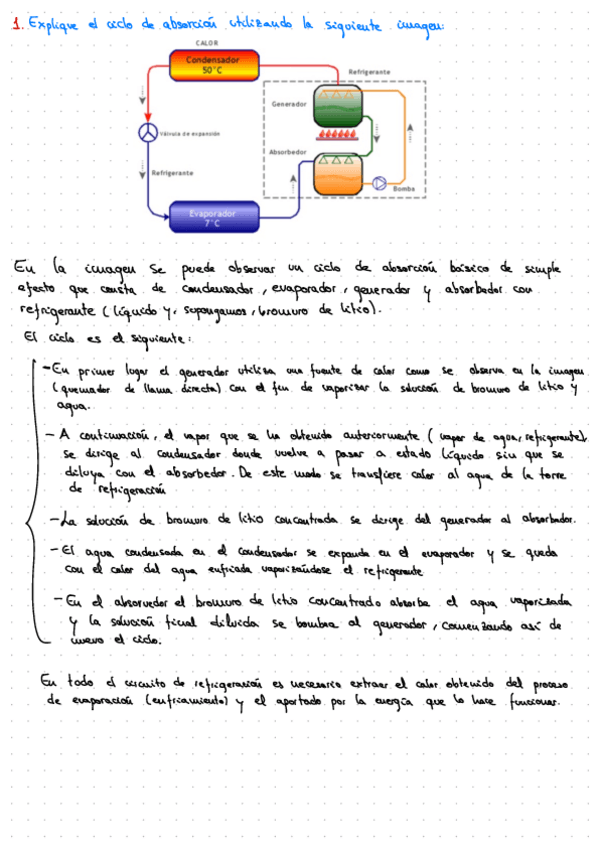 1. Explique el ciclo de absorción utilizando la siguiente imagen:
CALOR
Condensador
50°C
Refrigerante
Generador
Válvula de expansión
Absorbedor
Refrigerante
Bomba
Evaporador
7°C
En la imagen se puede observar un ciclo de absorción básico de simple
efecto que consta de condensador, evaporador, generador y absorbedor con
refrigerante (líquido y, supongamos, bromuro de litio).
El ciclo es el siguiente:
- En primer lugar el generador utiliza una fuente de calor como se observa en la imagen
(quemador de llama directa) con el fin de vaporizar la solución de bromuro de litio y
agua.
- A continuación, el vapor que se ha obtenido anteriormente (vapor de agua, refrigerante)
se dirige al condensador donde vuelve a pasar a estado líquido sin que se
diluya con el absorbedor. De este modo se transfiere calor al agua de la torre
de refrigeración
- La solución de bromuro de litio concentrada se dirige del generador al absorbedor.
- El agua condensada en el condensador se expande en el evaporador y se queda
con el calor del agua enfriada vaporizándose el refrigerante
- En el absorvedor el bromuro de litio concentrado absorbe el agua vaporizada
y la solución final diluida se bombea al generador, comenzando así de
nuevo el ciclo.
En todo el circuito de refrigeración es necesario extraer el calor obtenido del proceso
de evaporación (enfriamiento) y el aportado por la energía que lo hace funcionar.